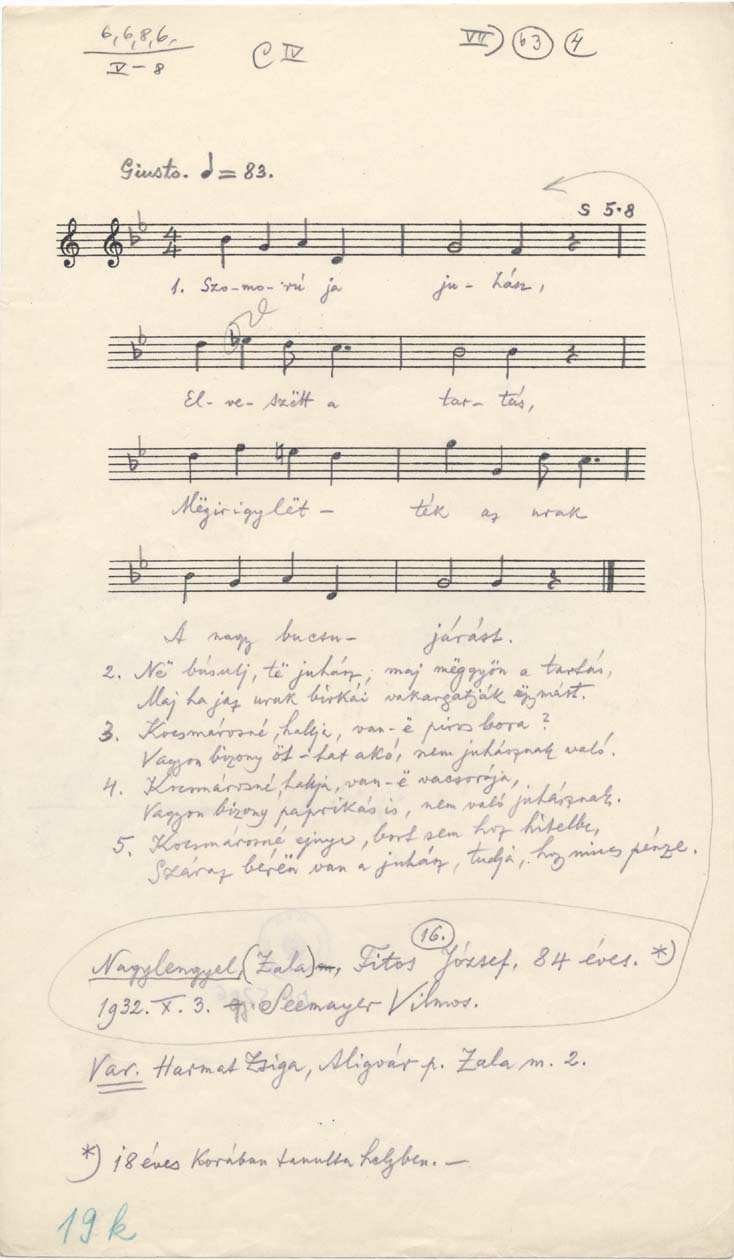 6,6,8,6,
IV-8
C IV
VII) 63 4
Giusto. = 83.
S 5·8
4
4
1. Szo-mo-rú ja ju-hász,
El-ve-szëtt a tar-tás,
Mëgirigylët- ték az urak
A nagy bucsu- járást.
2. Në búsulj, të juhász, maj mëggyön a tartás,
Maj ha jaz urak birkái vakargatják ëgymást.
3. Kocsmárosné, hallja, van-ë piros bora?
Vagyon bizony öt-hat akó, nem juhásznak való.
4. Kocsmárosné, hallja, van-ë vacsorája,
Vagyon bizony paprikás is, nem való juhásznak.
5. Kocsmárosné ejnye, bort sem hoz hitelbe,
Száraz bérën van a juhász, tudja, hoz nincs pénze.
16.
Nagylengyel, (Zala), Fitos József, 84 éves. *)
1932. X. 3. gy. Seemayer Vilmos.
Var. Harmat Zsiga, Aligvár p. Zala m. 2.
*) 18 éves korában tanulta helyben. —
19k